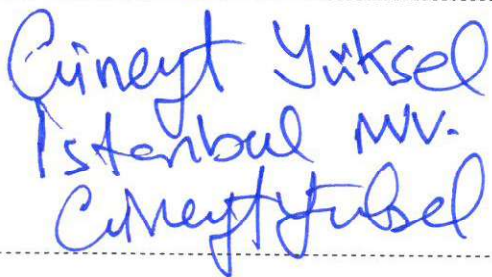 Cüneyt Yüksel
İstanbul MV.
Cüneyt Yüksel